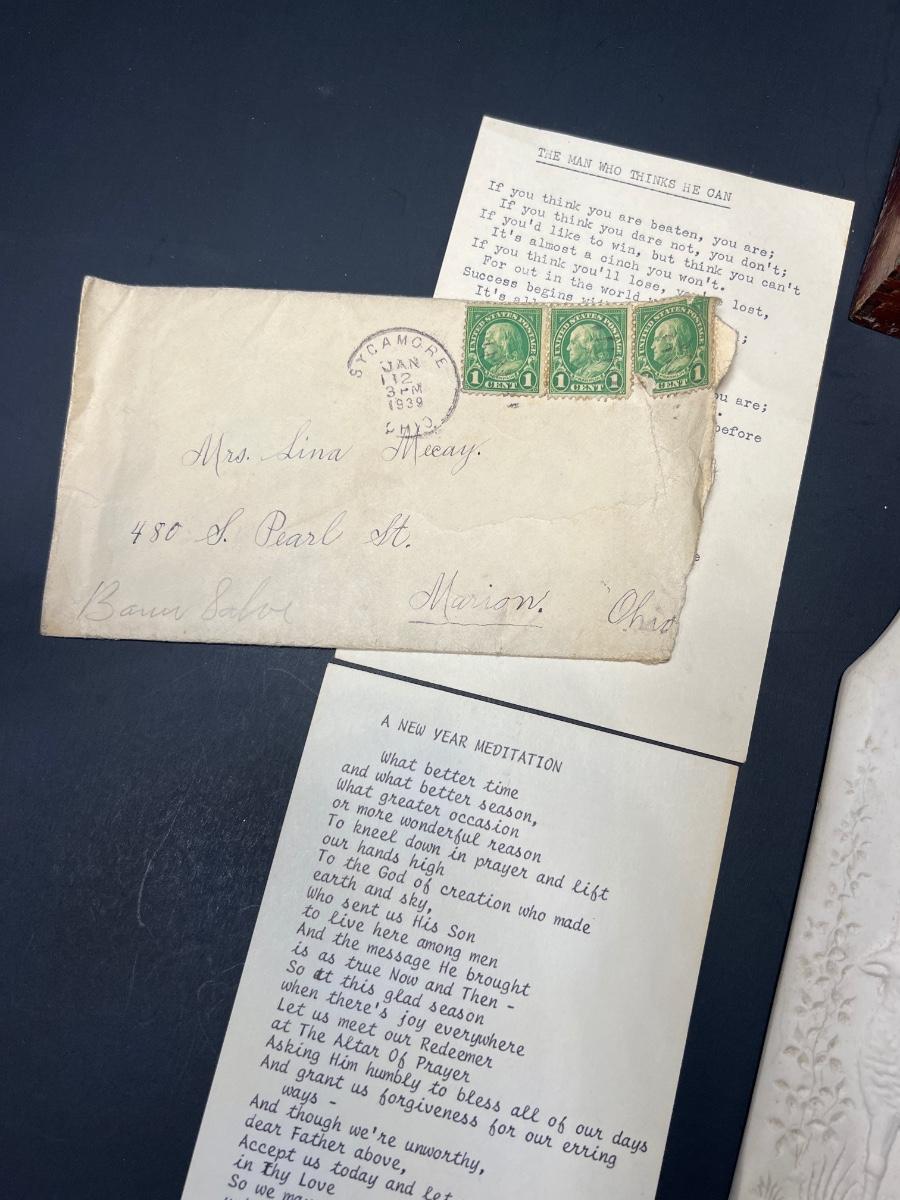 THE MAN WHO THINKS HE CAN
If you think you are beaten, you are;
If you think you dare not, you don't;
If you'd like to win, but think you can't
It's almost a cinch you won't.
If you think you'll lose, lost,
For out in the world
Success begins
It's
;
you are;
.
before
SYCAMORE
JAN
12
3 PM
1939
OHIO
UNITED STATES POSTAGE
1 CENT 1
UNITED STATES POSTAGE
1 CENT 1
UNITED STATES POSTAGE
CENT 1
Mrs. Lina Mecay.
480 S. Pearl St.
Marion. Ohio
Salve
A NEW YEAR MEDITATION
What better time
and what better season,
What greater occasion
or more wonderful reason
To kneel down in prayer and lift
our hands high
To the God of creation who made
earth and sky,
Who sent us His Son
to live here among men
And the message He brought
is as true Now and Then -
So at this glad season
when there's joy everywhere
Let us meet our Redeemer
at The Altar Of Prayer
Asking Him humbly to bless all of our days
And grant us forgiveness for our erring
ways -
And though we're unworthy,
dear Father above,
Accept us today and let
in Thy Love
So we may